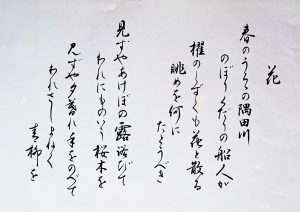 花
春のうらの隅田川
のぼりくだりの船人が
櫂のしずくも花と散る
眺めを何に
たとうべき
見ずやあけぼの露浴びて
われにものいう桜木を
見ずや夕暮れ手をのべて
われさしまねく
青柳を